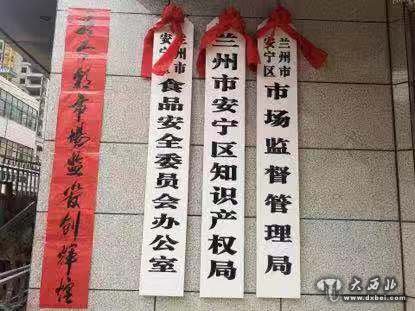 兰州市
安宁区
市场监督管理局
兰州市安宁区知识产权局
兰州市
安宁区
食品安全委员会办公室
市場监管创輝煌
大西北
www.dxbei.com